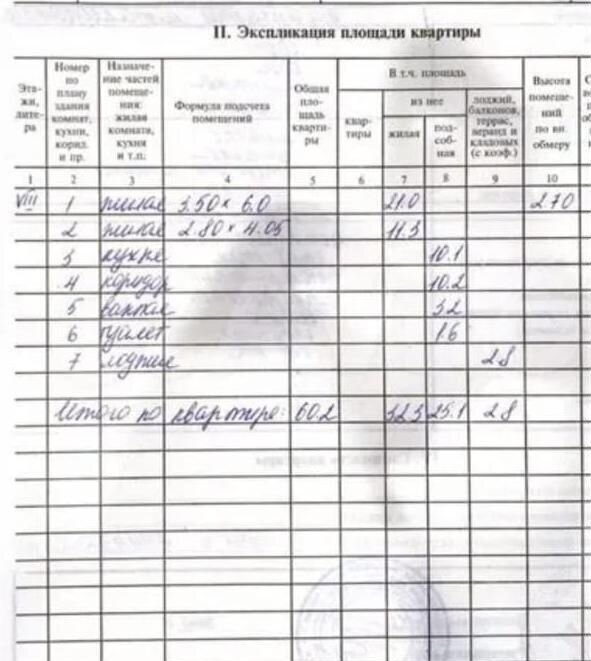 II. Экспликация площади квартиры
Эта-
жи,
лите-
ра
Номер
по
плану
здания
комнат,
кухни,
корид.
и пр.
Назначе-
ние частей
помеще-
ния:
жилая
комната,
кухня
и т.п.
Формула подсчета
помещений
Общая
пло-
щадь
кварти-
ры
В т.ч. площадь
квар-
тиры
из нее
жилая
под-
соб-
ная
лоджий,
балконов,
террас,
веранд и
кладовых
(с коэф.)
Высота
помеще-
ний
по вн.
обмеру
1 2 3 4 5 6 7 8 9 10
VIII 1 жилая 3.50 × 6.0 21.0 2.70
2 жилая 2.80 × 4.05 11.3
3 кухня 10.1
4 коридор 10.2
5 ванная 3.2
6 туалет 1.6
7 лоджия 2.8
Итого по квартире: 60.2 32.3 25.1 2.8